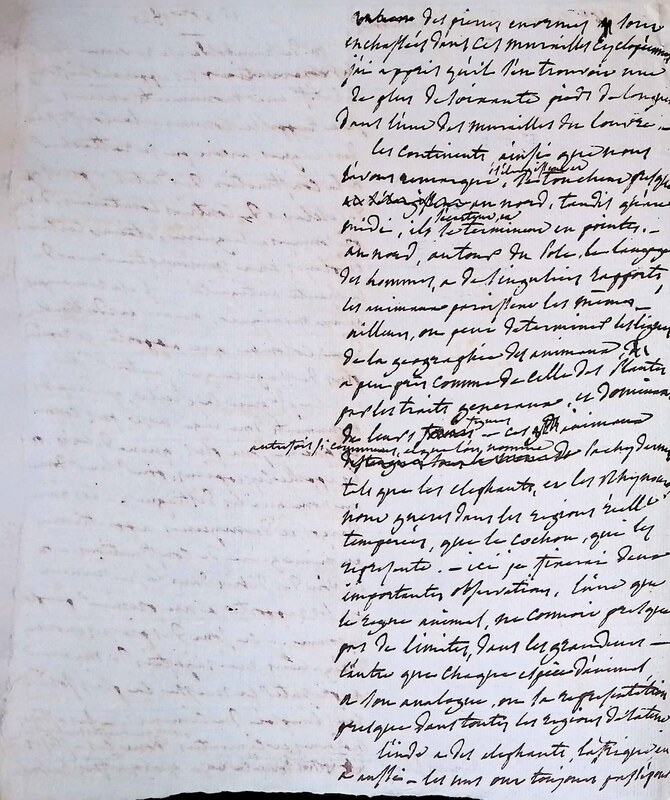 des pierres enormes sont
enchassées dans ces murailles cyclopéennes
j'ai appris qu'il s'en trouvoit une
de plus de soixante pieds de longue
dans l'une des murailles du louvre.
les continents, ainsi que nous
l'avons remarqué, s'élargissent et se touchent presque
au nord, tandis qu'au
midi, ils se terminent en pointes. —
au nord, autour du Pole, le langage
des hommes, a de singuliers rapports
les animaux paroissent les mêmes —
ailleurs, on peut determiner les lignes
de la geographie des animaux,
a peu près comme de celle des Plantes
par les traits generaux, et dominans
de leurs types — ces animaux
autrefois si communs, et que l'on nomme
de Pachydermes
tels que les elephants, et les Rhynoc
n'ont gueres dans les regions
temperées, que le cochon, qui les
represente. — ici je ferai deux
importantes observations, l'une que
le regne animal, ne connoit presque
pas de limites, dans les grandeurs —
l'autre que chaque espèce d'animal
a son analogue, ou sa representation
presque dans toutes les regions de la terre
l'inde a des elephants, l'afrique en
a aussi — les uns ont toujours